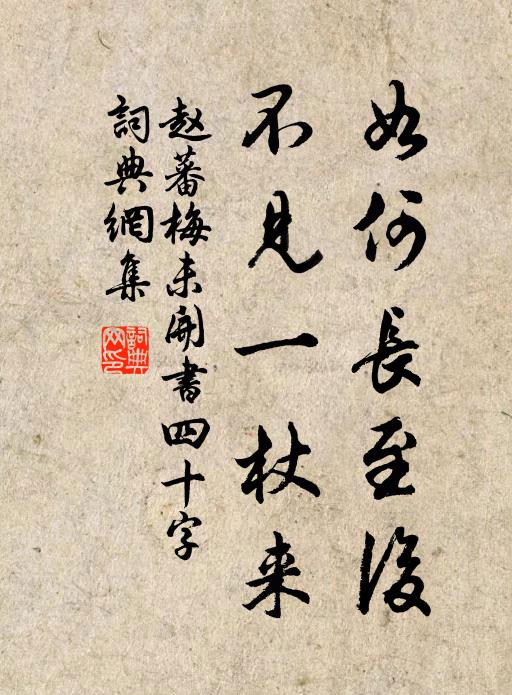 如何長至後
不見一杖来
赵蕃梅未開書四十字
詞典網集
詞典
网印